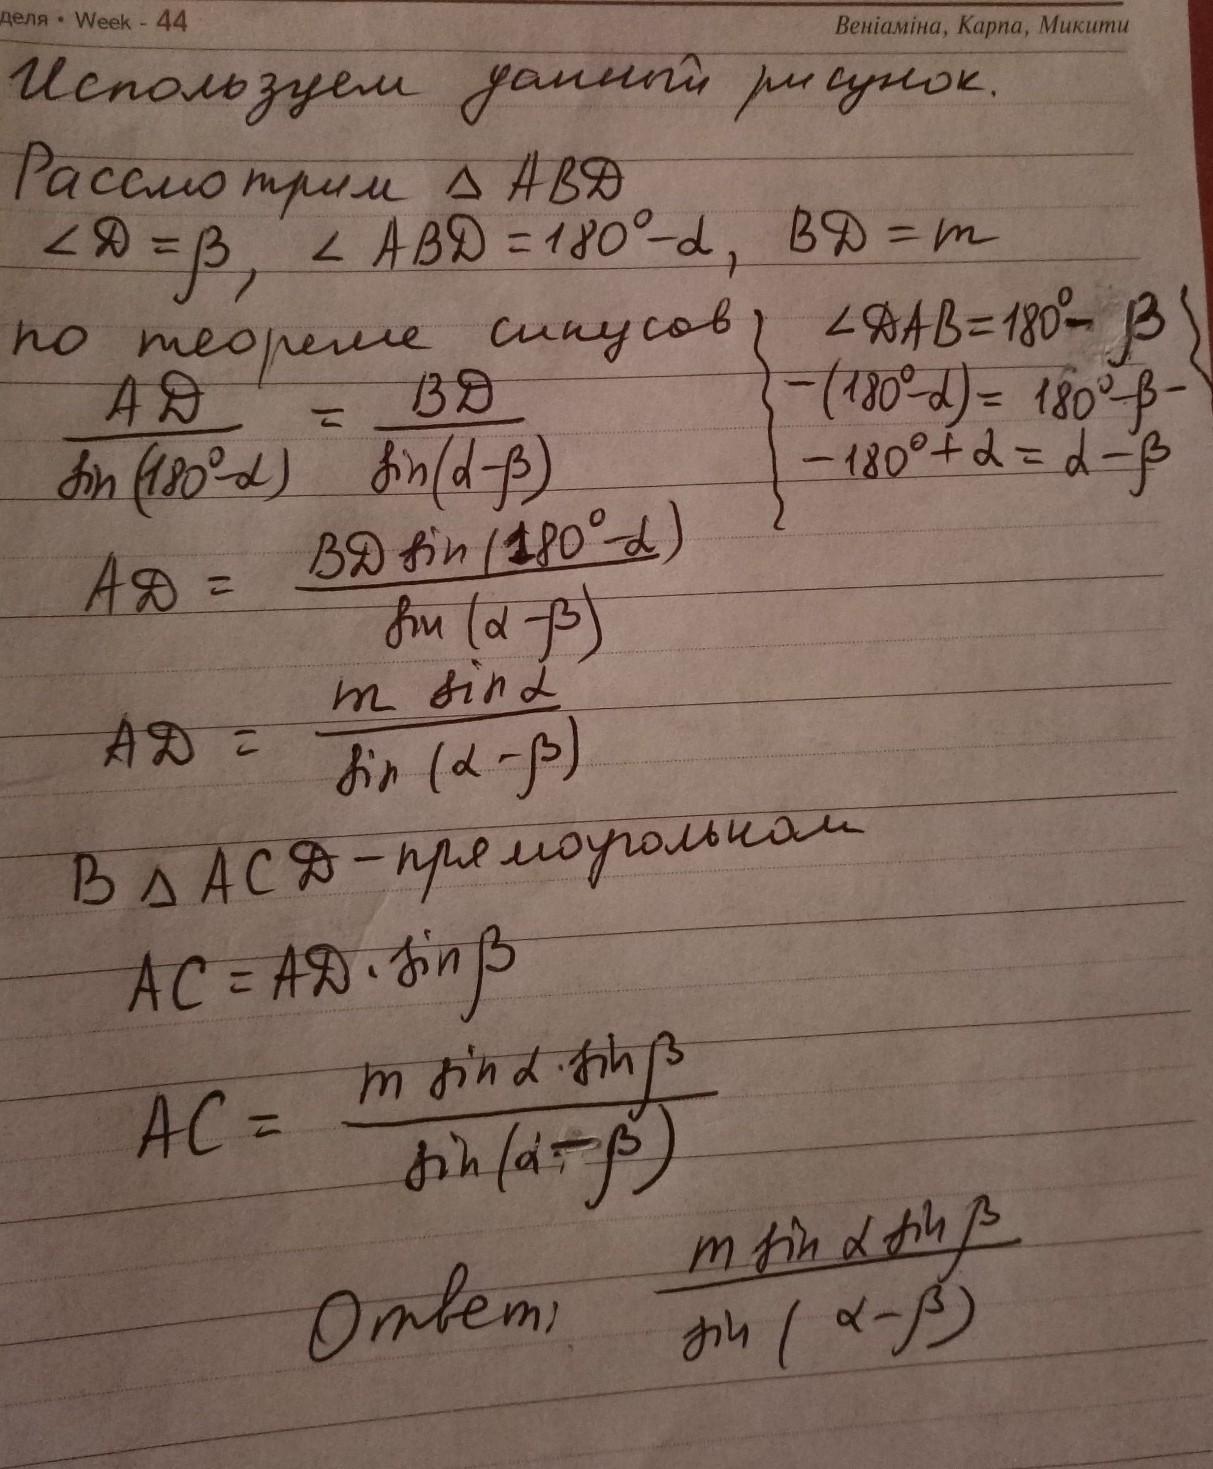 деля • Week - 44
Веніаміна, Карпа, Микити
Используем данный рисунок.
Рассмотрим △ ABD
∠D = β, ∠ ABD = 180° - α, BD = m
по теореме синусов } ∠DAB = 180° - β
AD / sin(180° - α) = BD / sin(α - β)
- (180° - α) = 180° - β -
- 180° + α = α - β
AD = BD sin(180° - α) / sin(α - β)
AD = m sin α / sin(α - β)
В △ ACD - прямоугольном
AC = AD · sin β
AC = m sin α · sin β / sin(α - β)
Ответ: m sin α sin β / sin(α - β)